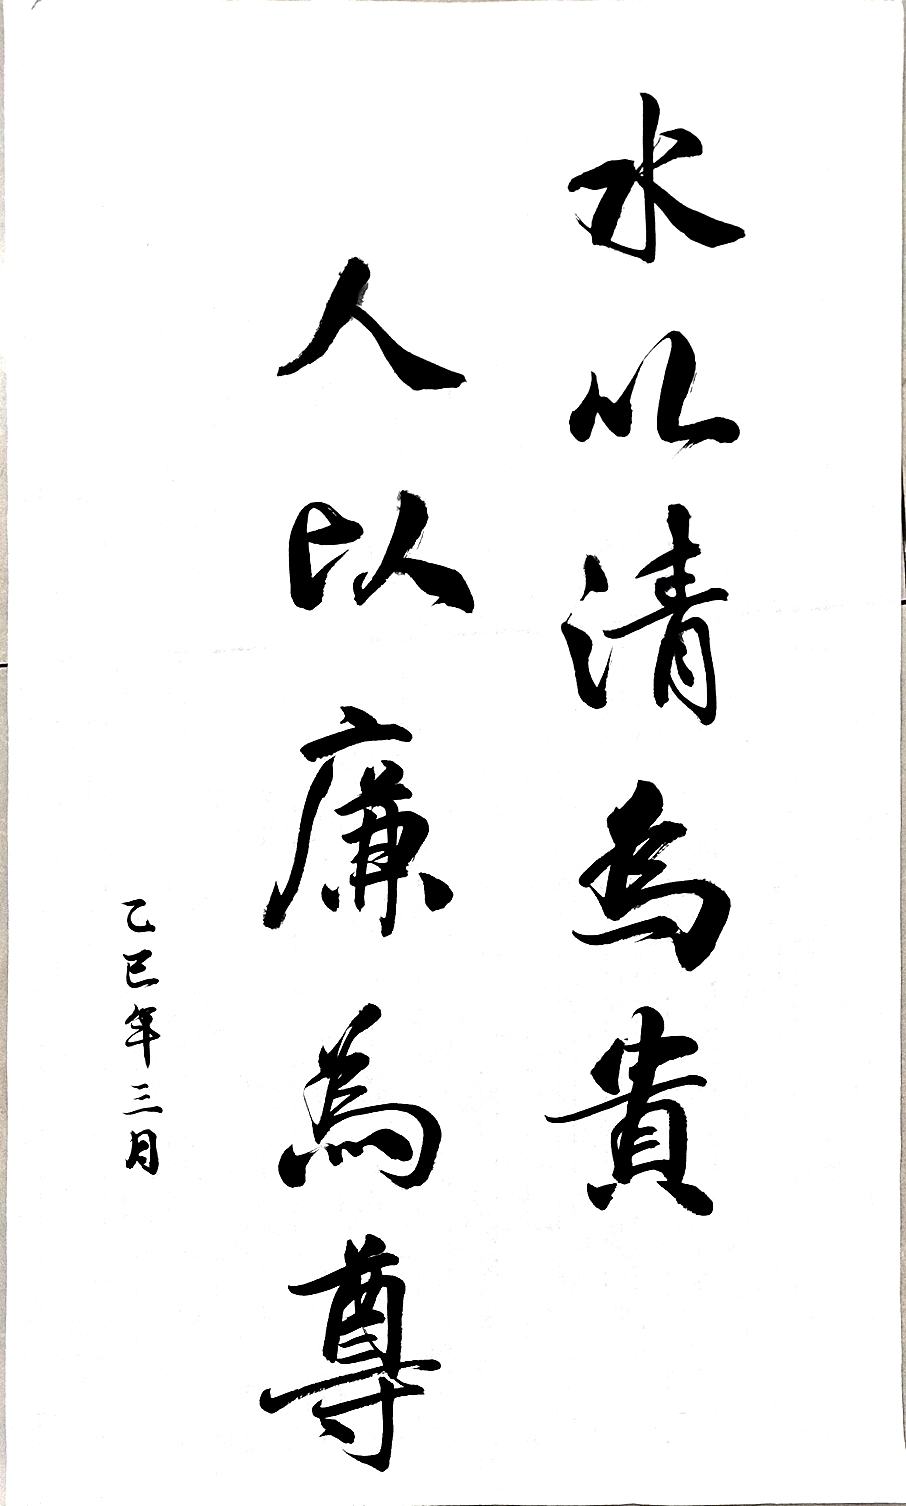 水以清為貴
人以廉為尊
乙巳年三月